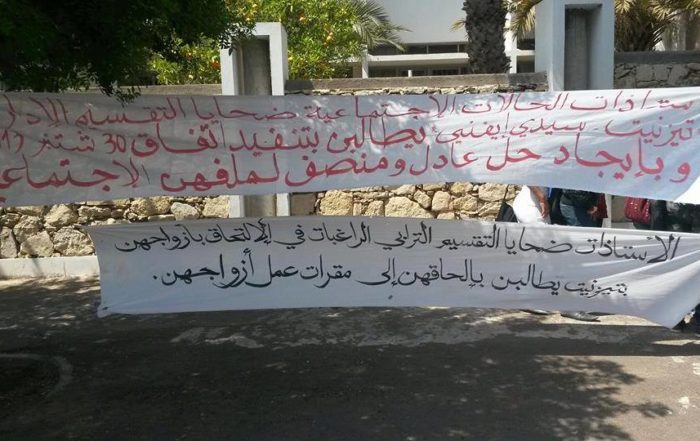 أستاذات الحالات الاجتماعية ضحايا التقسيم الإداري
تيزنيت - سيدي إيفني يطالبن بتنفيذ اتفاق 30 شتنبر
وبإيجاد حل عادل ومنصف لملفهن الإجتماعي
الأستاذات ضحايا التقسيم الترابي الراغبات في الإلتحاق بأزواجهن
بتيزنيت يطالبن بإلحاقهن إلى مقرات عمل أزواجهن.